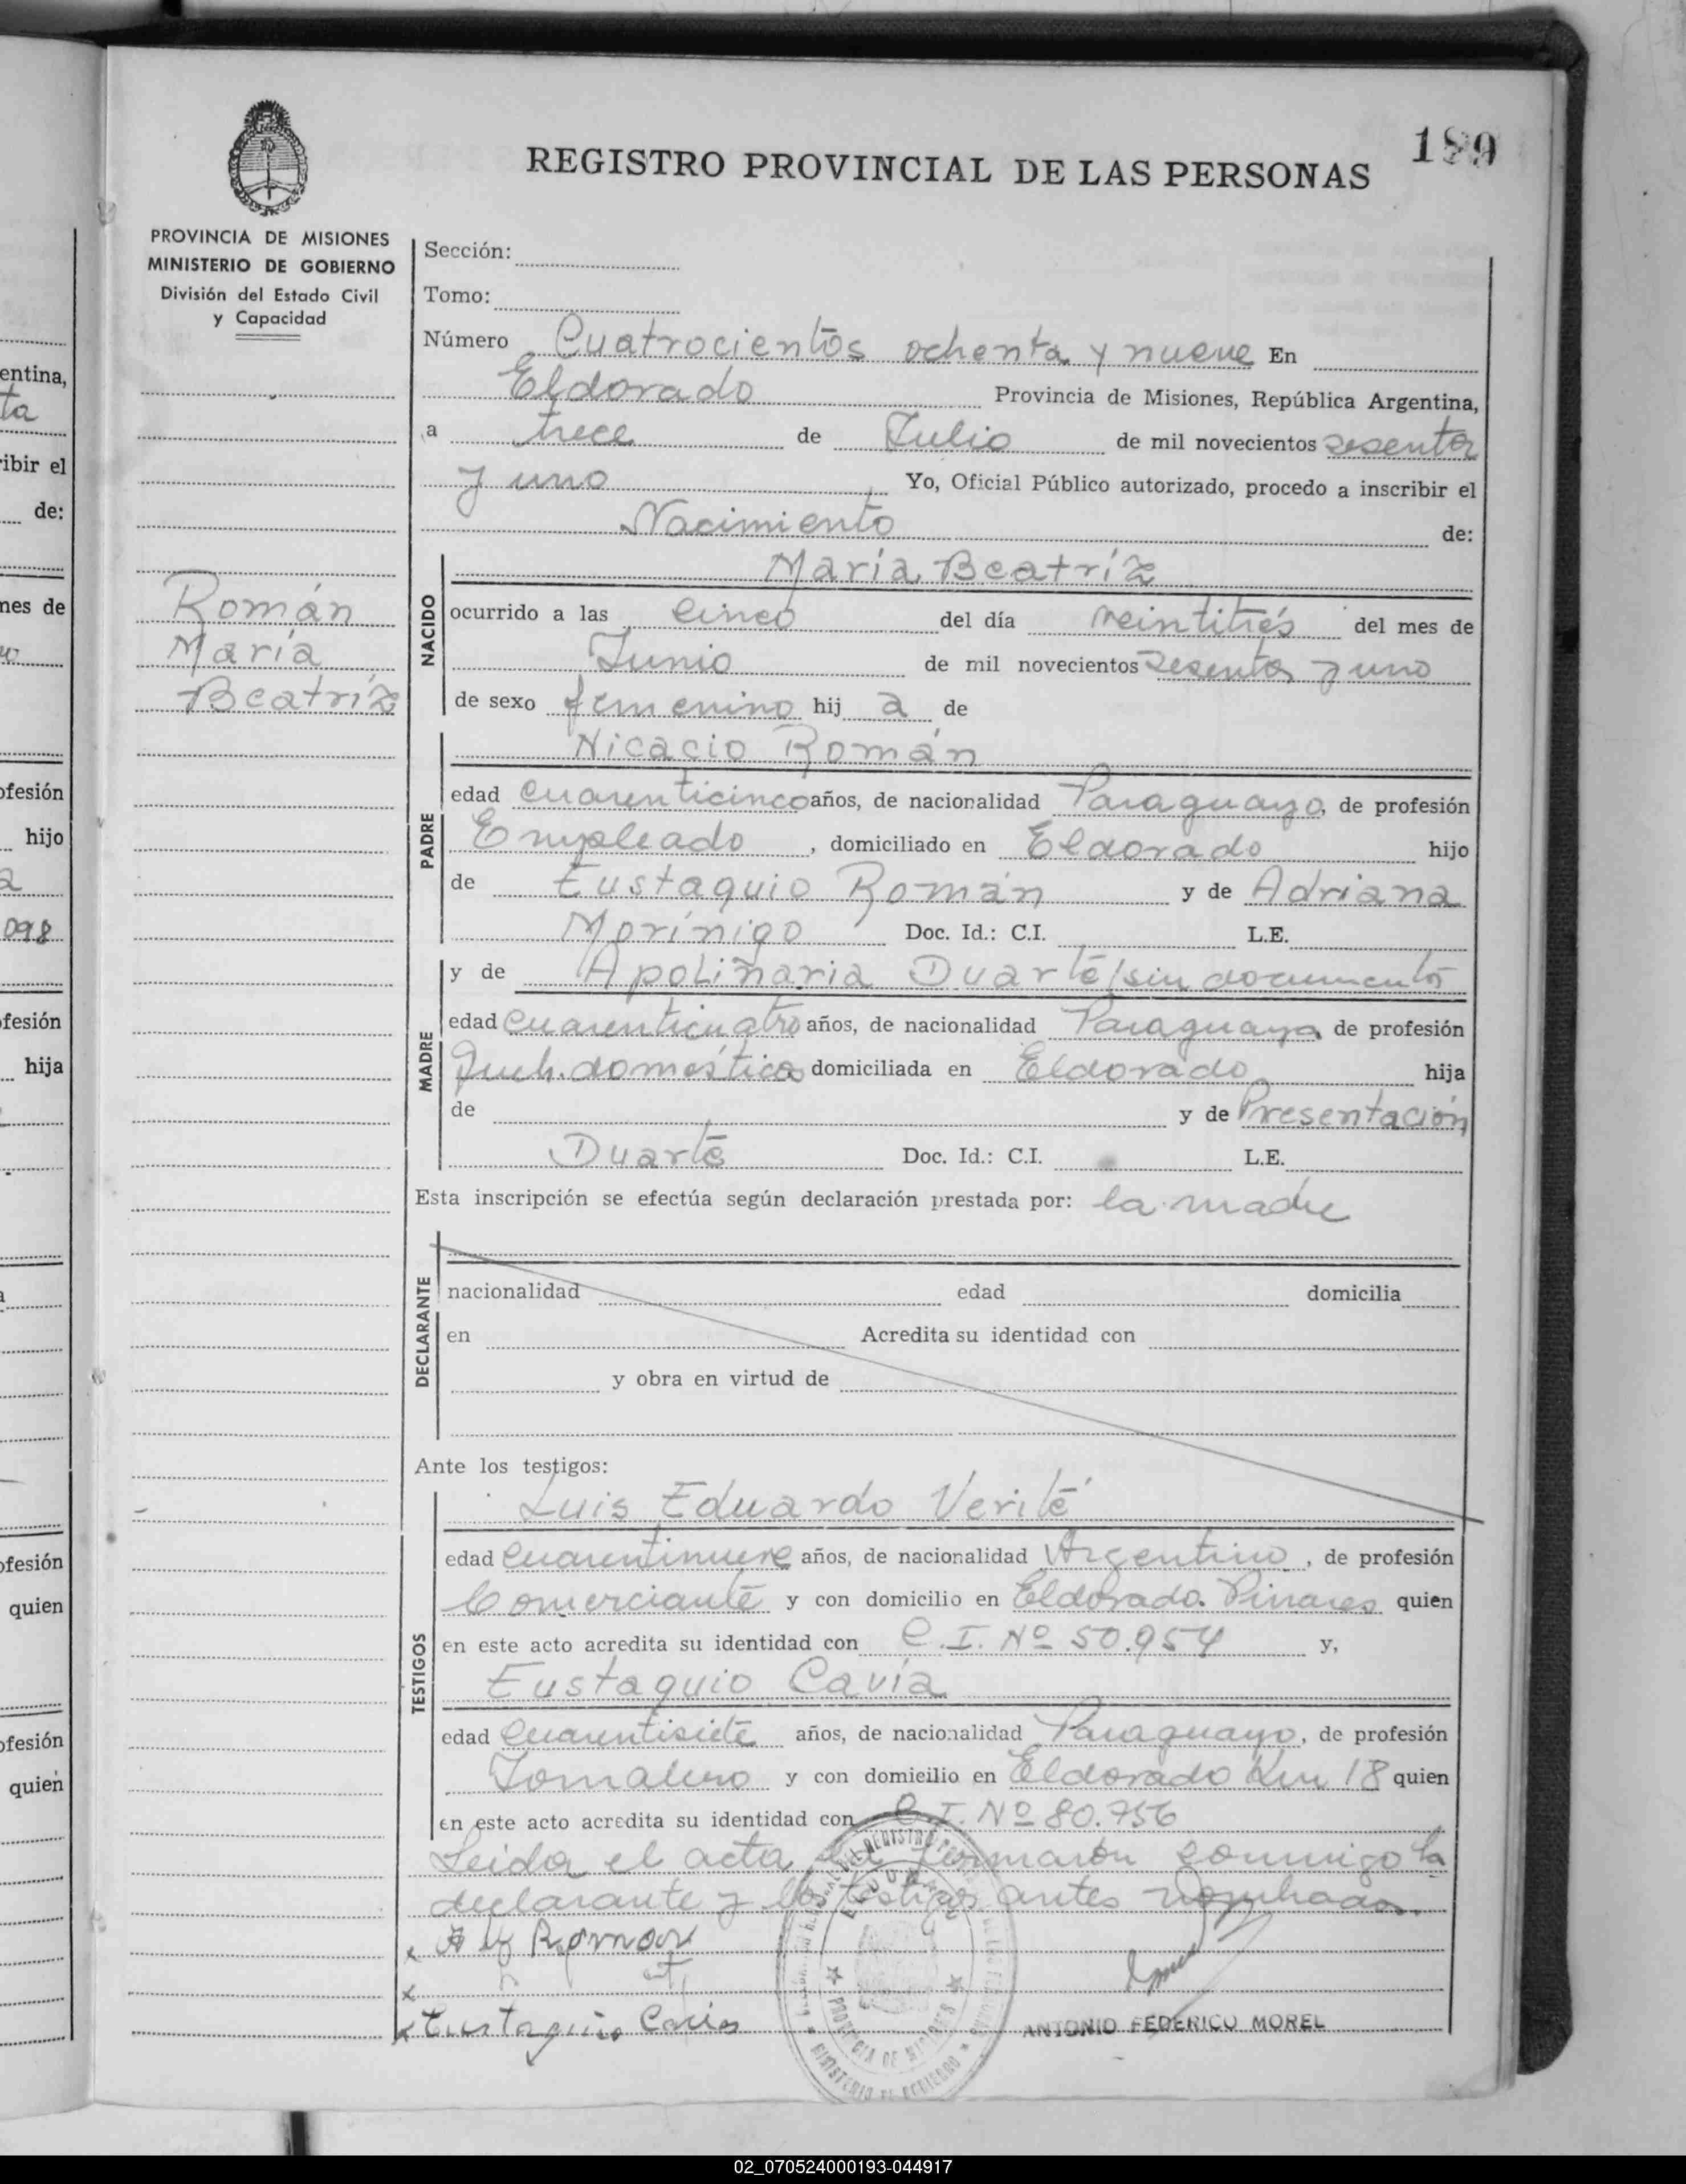 189
REGISTRO PROVINCIAL DE LAS PERSONAS
PROVINCIA DE MISIONES
MINISTERIO DE GOBIERNO
División del Estado Civil
y Capacidad
Román
María
Beatríz
Sección:
Tomo:
Número Cuatrocientos ochenta y nueve En
Eldorado Provincia de Misiones, República Argentina,
a trece de Julio de mil novecientos sesenta
y uno Yo, Oficial Público autorizado, procedo a inscribir el
Nacimiento de:
NACIDO
María Beatríz
ocurrido a las cinco del día veintitrés del mes de
Junio de mil novecientos sesenta y uno
de sexo femenino hij a de
Nicacio Román
PADRE
edad cuarenticinco años, de nacionalidad Paraguayo, de profesión
Empleado, domiciliado en Eldorado hijo
de Eustaquio Román y de Adriana
Morínigo Doc. Id.: C.I. L.E.
y de Apolinaria Duarte/sin documento
MADRE
edad cuarenticuatro años, de nacionalidad Paraguaya de profesión
Queh. domésticos domiciliada en Eldorado hija
de y de Presentación
Duarte Doc. Id.: C.I. L.E.
Esta inscripción se efectúa según declaración prestada por: la madre
DECLARANTE
nacionalidad edad domicilia
en Acredita su identidad con
y obra en virtud de
Ante los testigos:
TESTIGOS
Luis Eduardo Verité
edad cuarentinueve años, de nacionalidad Argentino, de profesión
Comerciante y con domicilio en Eldorado. Pinares quien
en este acto acredita su identidad con C.I. Nº 50.954 y,
Eustaquio Cavía
edad cuarentisiete años, de nacionalidad Paraguayo, de profesión
Jornalero y con domicilio en Eldorado Km 18 quien
en este acto acredita su identidad con C.I. Nº 80.756
Leida el acta la firmaron conmigo la
declarante y los testigos antes nombrados.
Roman
Eustaquio
ANTONIO FEDERICO MOREL
PROVINCIA DE MISIONES
MINISTERIO DE GOBIERNO
entina,
ta
ribir el
de:
mes de
ofesión
hijo
098
fesión
hija
ofesión
quien
ofesión
quien
02_070524000193-044917